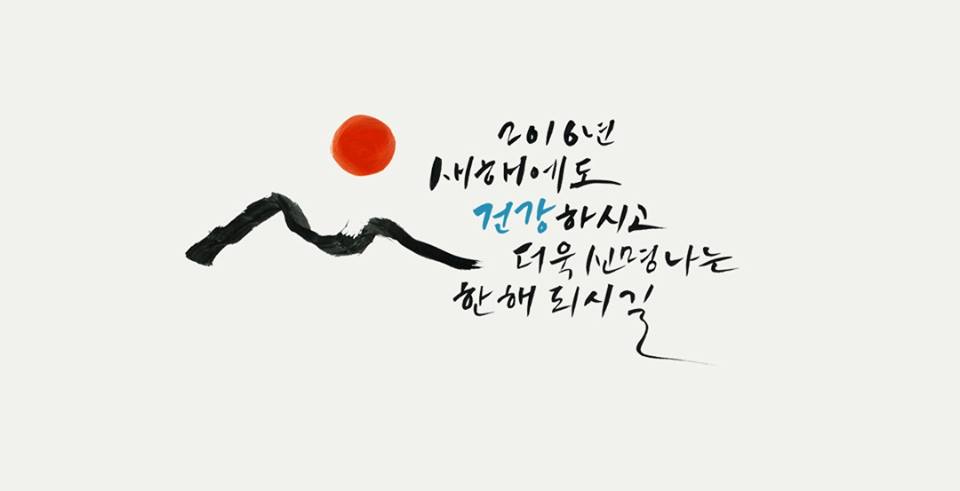 2016년
새해에도
건강하시고
더욱 신명나는
한해 되시길